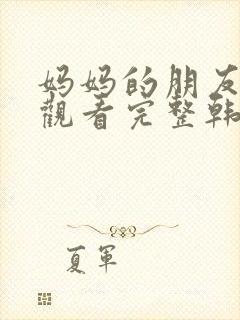 妈妈的朋友
觀看完整韩
夏軍